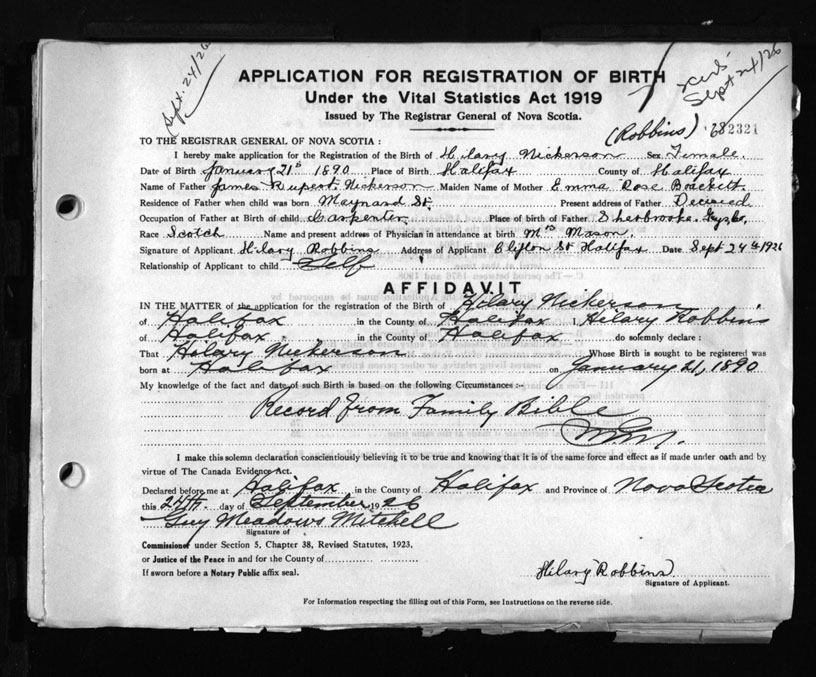 Sept. 24/26
APPLICATION FOR REGISTRATION OF BIRTH
Under the Vital Statistics Act 1919
Sept 24/26
Issued by The Registrar General of Nova Scotia.
(Robbins) 682321
TO THE REGISTRAR GENERAL OF NOVA SCOTIA :
I hereby make application for the Registration of the Birth of Hilary Nickerson Sex Female.
Date of Birth January 21st 1890 Place of Birth Halifax County of Halifax
Name of Father James Rupert Nickerson Maiden Name of Mother Emma Rose Brackett
Residence of Father when child was born Maynard St. Present address of Father Deceased
Occupation of Father at Birth of child Carpenter Place of birth of Father Sherbrooke, Guys Co.
Race Scotch Name and present address of Physician in attendance at birth Mrs Mason.
Signature of Applicant Hilary Robbins Address of Applicant Clifton St Halifax Date Sept 24th 1926
Relationship of Applicant to child Self
AFFIDAVIT
IN THE MATTER of the application for the registration of the Birth of Hilary Nickerson
of Halifax in the County of Halifax I, Hilary Robbins
of Halifax in the County of Halifax do solemnly declare :
That Hilary Nickerson Whose Birth is sought to be registered was
born at Halifax on January 21, 1890
My knowledge of the fact and date of such Birth is based on the following Circumstances :-
Record from Family Bible
I make this solemn declaration conscientiously believing it to be true and knowing that it is of the same force and effect as if made under oath and by
virtue of The Canada Evidence Act.
Declared before me at Halifax in the County of Halifax and Province of Nova Scotia
this 24th. day of September 1926
Guy Meadows Mitchell
Signature of
Commissioner under Section 5, Chapter 38, Revised Statutes, 1923,
or Justice of the Peace in and for the County of
If sworn before a Notary Public affix seal.
Hilary Robbins
Signature of Applicant.
For Information respecting the filling out of this Form, see Instructions on the reverse side.